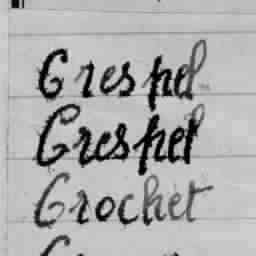 Grespel
Grespel
Crochet